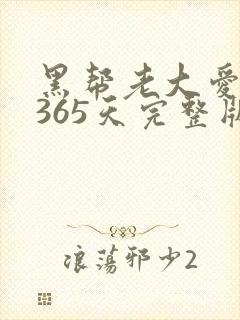 黑帮老大爱
365天完整版
浪荡邪少2